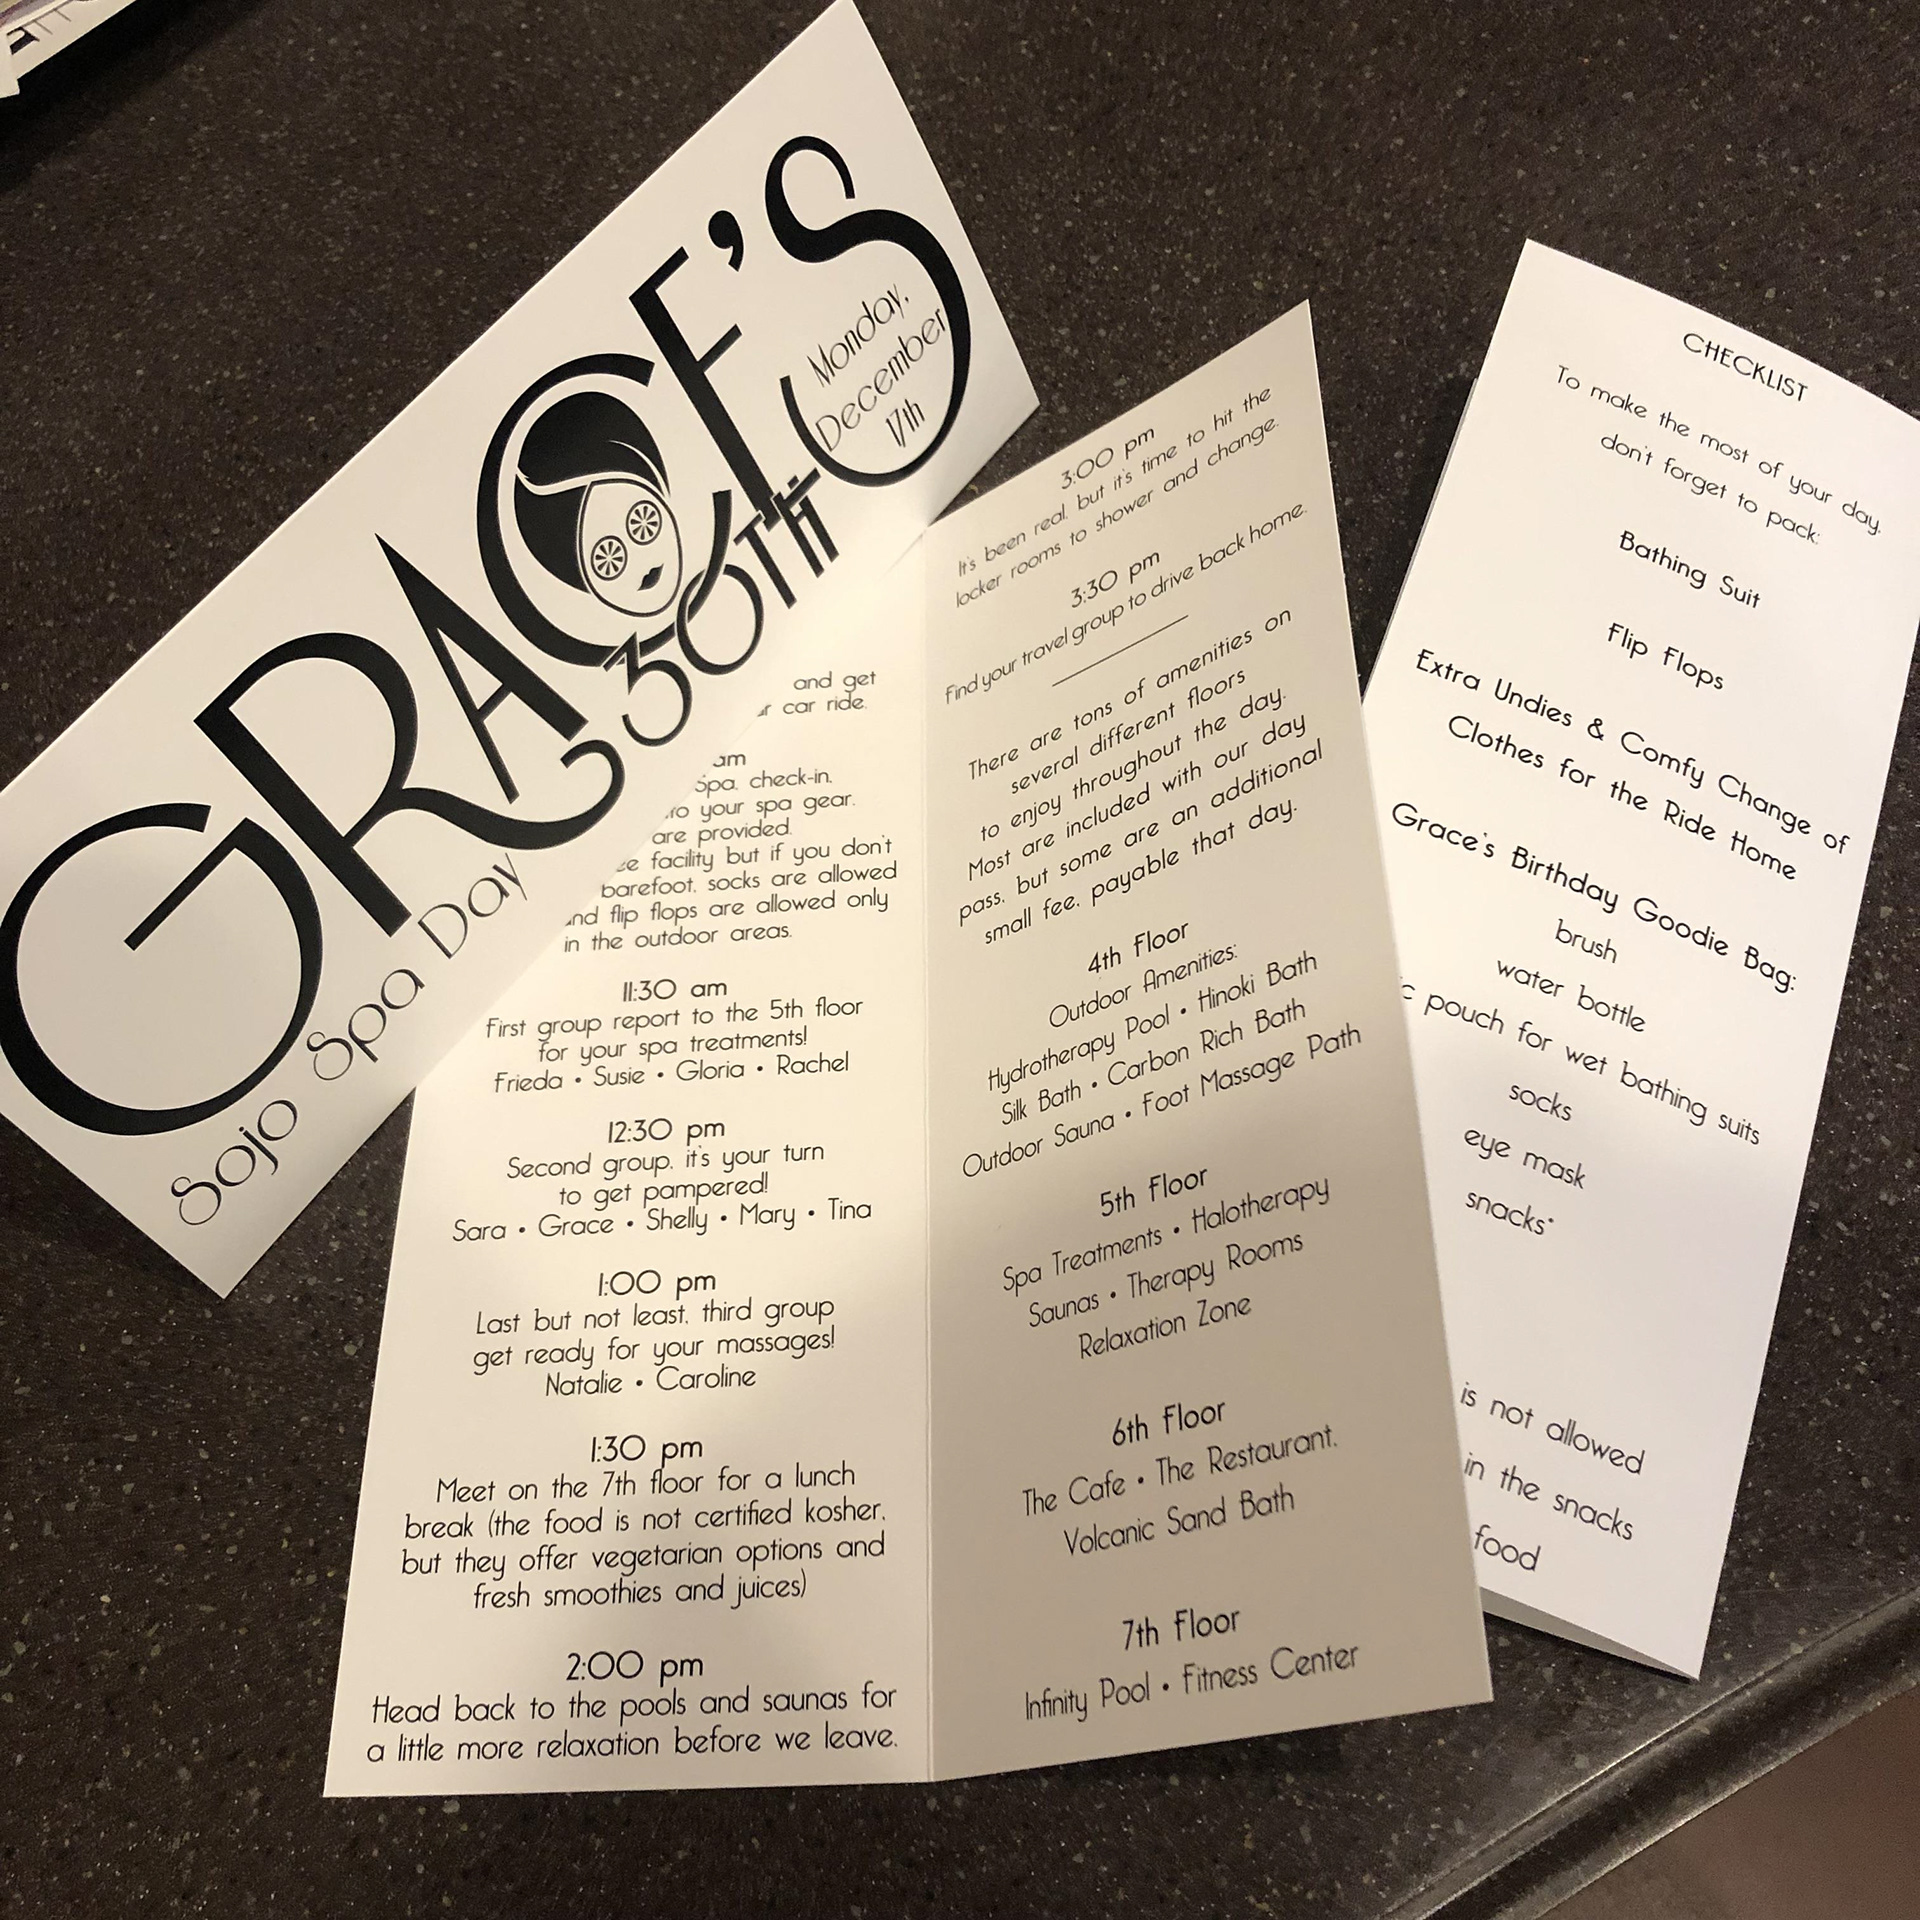 GRACE'S
30TH
Monday,
December
17th
Sojo Spa Day
and get
car ride.
am
Spa, check-in.
your spa gear.
are provided.
facility but if you don't
barefoot, socks are allowed
and flip flops are allowed only
in the outdoor areas.
11:30 am
First group report to the 5th floor
for your spa treatments!
Frieda • Susie • Gloria • Rachel
12:30 pm
Second group, it's your turn
to get pampered!
Sara • Grace • Shelly • Mary • Tina
1:00 pm
Last but not least, third group
get ready for your massages!
Natalie • Caroline
1:30 pm
Meet on the 7th floor for a lunch
break (the food is not certified kosher,
but they offer vegetarian options and
fresh smoothies and juices)
2:00 pm
Head back to the pools and saunas for
a little more relaxation before we leave.
3:00 pm
It's been real, but it's time to hit the
locker rooms to shower and change.
3:30 pm
Find your travel group to drive back home.
There are tons of amenities on
several different floors
to enjoy throughout the day.
Most are included with our day
pass, but some are an additional
small fee, payable that day.
4th Floor
Outdoor Amenities:
Hydrotherapy Pool • Hinoki Bath
Silk Bath • Carbon Rich Bath
Outdoor Sauna • Foot Massage Path
5th Floor
Spa Treatments • Halotherapy
Saunas • Therapy Rooms
Relaxation Zone
6th Floor
The Cafe • The Restaurant,
Volcanic Sand Bath
7th Floor
Infinity Pool • Fitness Center
CHECKLIST
To make the most of your day,
don't forget to pack:
Bathing Suit
Flip Flops
Extra Undies & Comfy Change of
Clothes for the Ride Home
Grace's Birthday Goodie Bag:
brush
water bottle
pouch for wet bathing suits
socks
eye mask
snacks*
is not allowed
in the snacks
food